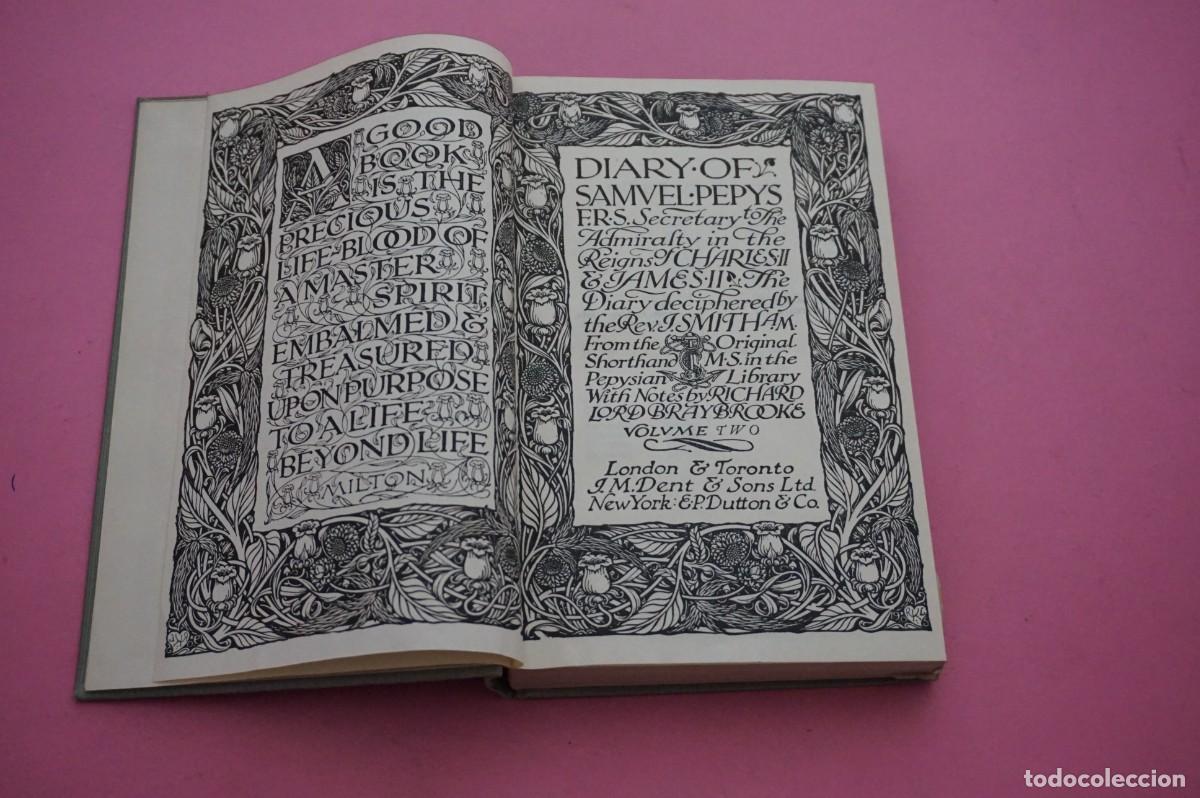 A GOOD
BOOK
IS THE
PRECIOUS
LIFE-BLOOD OF
A MASTER
SPIRIT,
EMBALMED &
TREASURED
UPON PURPOSE
TO A LIFE
BEYOND LIFE
MILTON
DIARY·OF
SAMVEL·PEPYS
F.R.S. Secretary to The
Admiralty in the
Reigns of CHARLES·II
& JAMES·II The
Diary deciphered by
the Rev. J. SMITH A.M.
From the Original
Shorthand M.S. in the
Pepysian Library
With Notes by RICHARD
LORD BRAYBROOKE
VOLVME TWO
London & Toronto
J.M. Dent & Sons Ltd.
New York: E.P. Dutton & Co.
todocoleccion